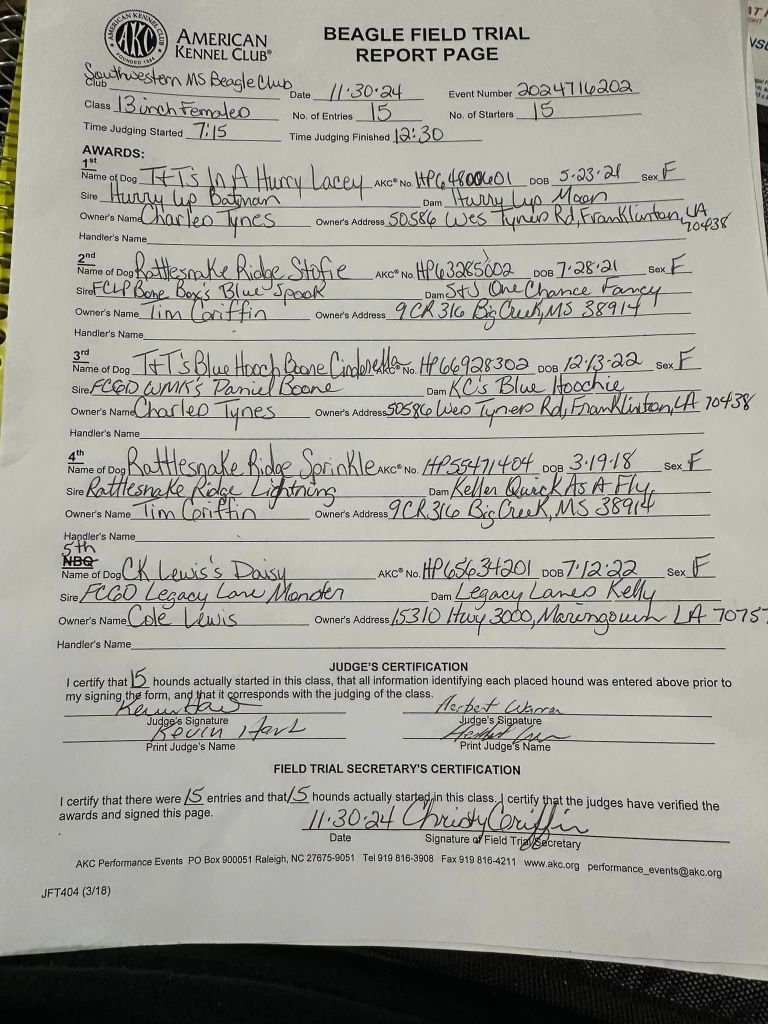 AMERICAN KENNEL CLUB
AKC
FOUNDED 1884
AMERICAN
KENNEL CLUB®
BEAGLE FIELD TRIAL
REPORT PAGE
Southwestern MS Beagle Club
Club Date 11-30-24 Event Number 2024716202
Class 13 inch Females No. of Entries 15 No. of Starters 15
Time Judging Started 7:15 Time Judging Finished 12:30
AWARDS:
1st
Name of Dog T&T's In A Hurry Lacey AKC® No. HP64800601 DOB 5-23-21 Sex F
Sire Hurry Up Batman Dam Hurry Up Moon
Owner's Name Charles Tynes Owner's Address 50586 Wes Tyners Rd, Franklinton, LA 70438
Handler's Name
2nd
Name of Dog Rattlesnake Ridge Stofie AKC® No. HP63285002 DOB 7-28-21 Sex F
Sire FCLP Bone Box's Blue Spook Dam S&J One Chance Fancy
Owner's Name Tim Griffin Owner's Address 9 CR 316 Big Creek, MS 38914
Handler's Name
3rd
Name of Dog T&T's Blue Hooch Boone Cinderella AKC® No. HP66928302 DOB 12-13-22 Sex F
Sire FCGD WMK's Daniel Boone Dam KC's Blue Hoochie
Owner's Name Charles Tynes Owner's Address 50586 Wes Tyners Rd, Franklinton, LA 70438
Handler's Name
4th
Name of Dog Rattlesnake Ridge Sprinkle AKC® No. HP55471404 DOB 3-19-18 Sex F
Sire Rattlesnake Ridge Lightning Dam Keller Quick As A Fly
Owner's Name Tim Griffin Owner's Address 9 CR 316 Big Creek, MS 38914
Handler's Name
5th
NBQ
Name of Dog CK Lewis's Daisy AKC® No. HP65634201 DOB 7-12-22 Sex F
Sire FCGD Legacy Lane Monster Dam Legacy Lanes Kelly
Owner's Name Cole Lewis Owner's Address 15310 Hwy 3000, Maringouin LA 70757
Handler's Name
JUDGE'S CERTIFICATION
I certify that 15 hounds actually started in this class, that all information identifying each placed hound was entered above prior to
my signing the form, and that it corresponds with the judging of the class.
Kevin Hart Herbert Warren
Judge's Signature Judge's Signature
Kevin Hart
Print Judge's Name Print Judge's Name
FIELD TRIAL SECRETARY'S CERTIFICATION
I certify that there were 15 entries and that 15 hounds actually started in this class. I certify that the judges have verified the
awards and signed this page.
11-30-24 Christy Griffin
Date Signature of Field Trial Secretary
AKC Performance Events PO Box 900051 Raleigh, NC 27675-9051 Tel 919 816-3908 Fax 919 816-4211 www.akc.org performance_events@akc.org
JFT404 (3/18)